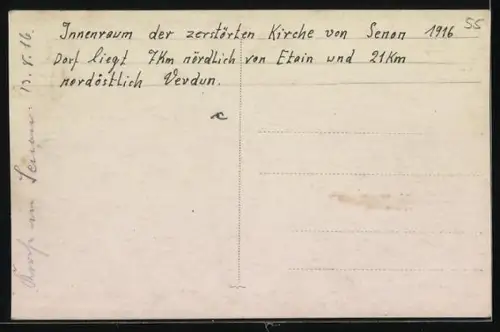 Innenraum der zerstörten Kirche von Senon 1916
Dorf liegt 7Km nördlich von Etain und 21Km
nordöstlich Verdun.
55
in Senon. 13.8.16.